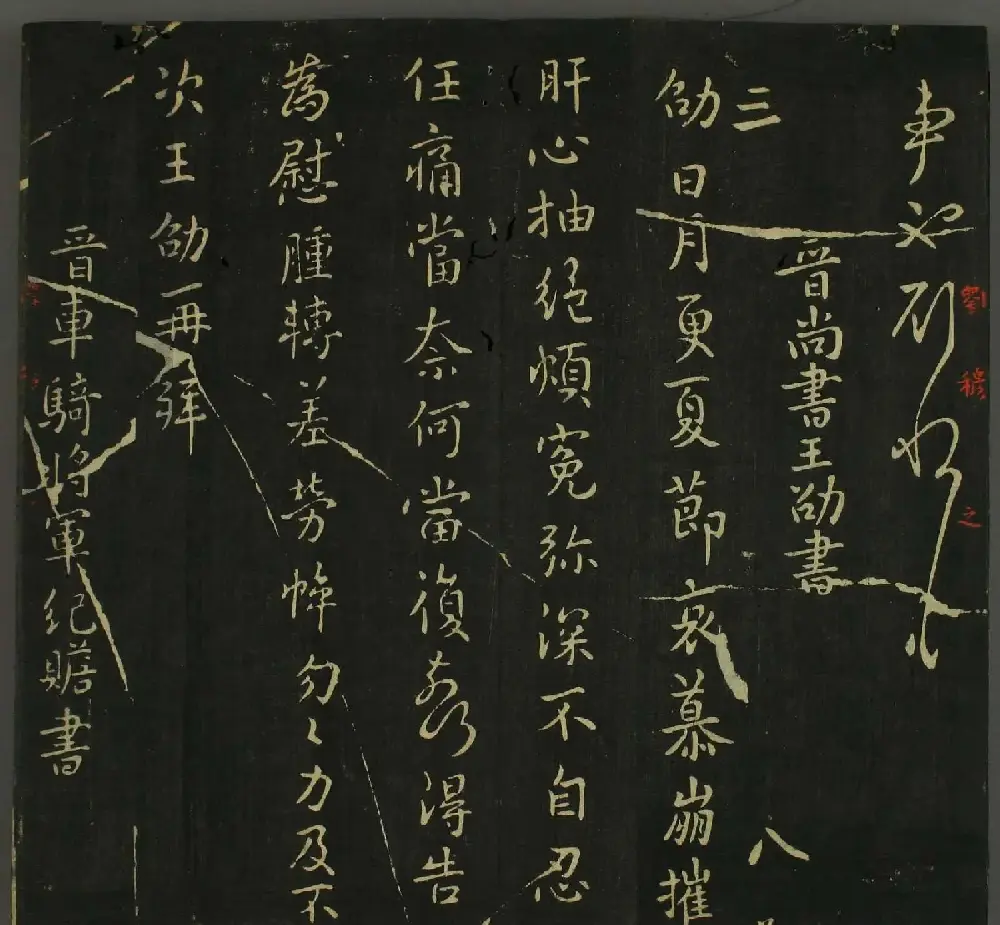 事
劉 穆 之
晋尚書王劭書
三
八
劭日月更夏節哀慕崩摧
肝心抽絕煩冤弥深不自忍
任痛當奈何當復得告
為慰腫轉差勞悴勿〻力及不
次王劭再拜
晋車騎將軍紀瞻書